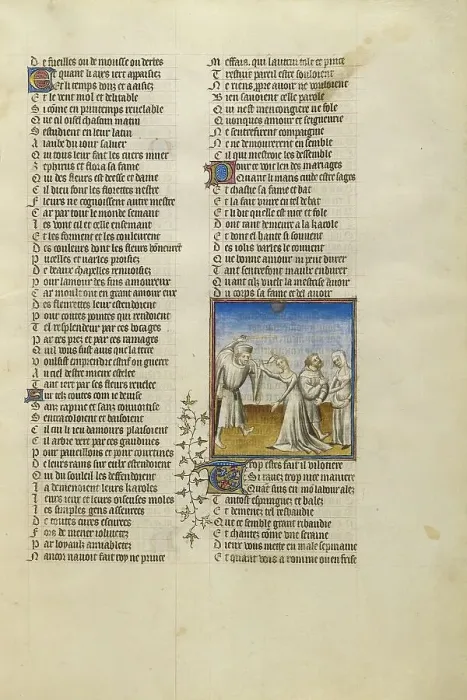 De fueilles ou de mousse ou derbes
Et quant li airs iert appaisiez
Et li temps douz et aaisiez
Et li vent mol et delitable
Si come en printemps
Que cil oisel chascun matin
Sestudient en leur latin
A laube du iour saluer
Qui tous leur fait les cuers muer
Zephirus et flora sa fame
Qui des fleurs est deesse et dame
Cil dieu font les florettes nestre
Fleurs ne cognoissent autre mestre
Car par tout le monde semant
Les vont cil et celle ensemant
Et les forment et les couleurent
Des couleurs dont les fleurs
Pucelles et varles proisiez
De beaux chapelles renuoisiez
Pour lamour des fins amoureux
Car moult ont en grant amour eux
Des fleurettes leur estendoient
Pour coutes pointes qui rendoient
Tel resplendeur par ces
Par ces prez et par ces ramages
Quil vous fust auis que la terre
Voulsist emprendre estrif ou guerre
Au ciel destre mieux estelee
Tant iert par ses fleurs
Sur telz coutes com ie deuise
Sanz rapine et sanz conuoitise
Sentracoloient et baisoient
Cil cui li ieu damours plaisoient
Cil arbre vert par ces gaudines
Pour paueillons et pour courtines
De leurs rains sur eulx estendoient
Qui du souleil les deffendoient
La demenoient leurs karoles
Leurs ieux et leurs oiseuses moles
Les simples gens asseurees
De toutes cures escurees
Fors de mener
Par loyaulx amiabletez
Nancor nauoit fait roy ne prince
Meffais qui lautrui tolt et pince
Trestuit pareil estre souloient
Ne riens propre auoir ne vouloient
Bien sauoient celle parole
Qui nest mencongiere ne fole
Quonques amour et seigneurie
Ne sentrefirent compaignie
Ne ne demourerent ensemble
Cil qui mestroie les dessemble
Pour ce voit len des mariages
Quant li maris cuide estre sages
Et chastie sa fame et bat
Et la fait viure en tel debat
Et li dit quelle est nice et fole
Dont tant demeure a la karole
Et dont el hante si souuent
Des iolis varles le couuent
Que bonne amour ni peut durer
Tant sentrefont maulx endurer
Quant cilz vuelt la mestrise auoir
Du corps sa fame et de lauoir
Trop estes fait il vilotiere
Si rauez trop nice maniere
Quant suis en mon labour alez
Tantost espinguez et balez
Et demenez tel resbaudie
Que ce semble grant ribaudie
Et chantez come vne seraine
Dieux vous mette en male sepmaine
Et quant vois a romme ou en frise